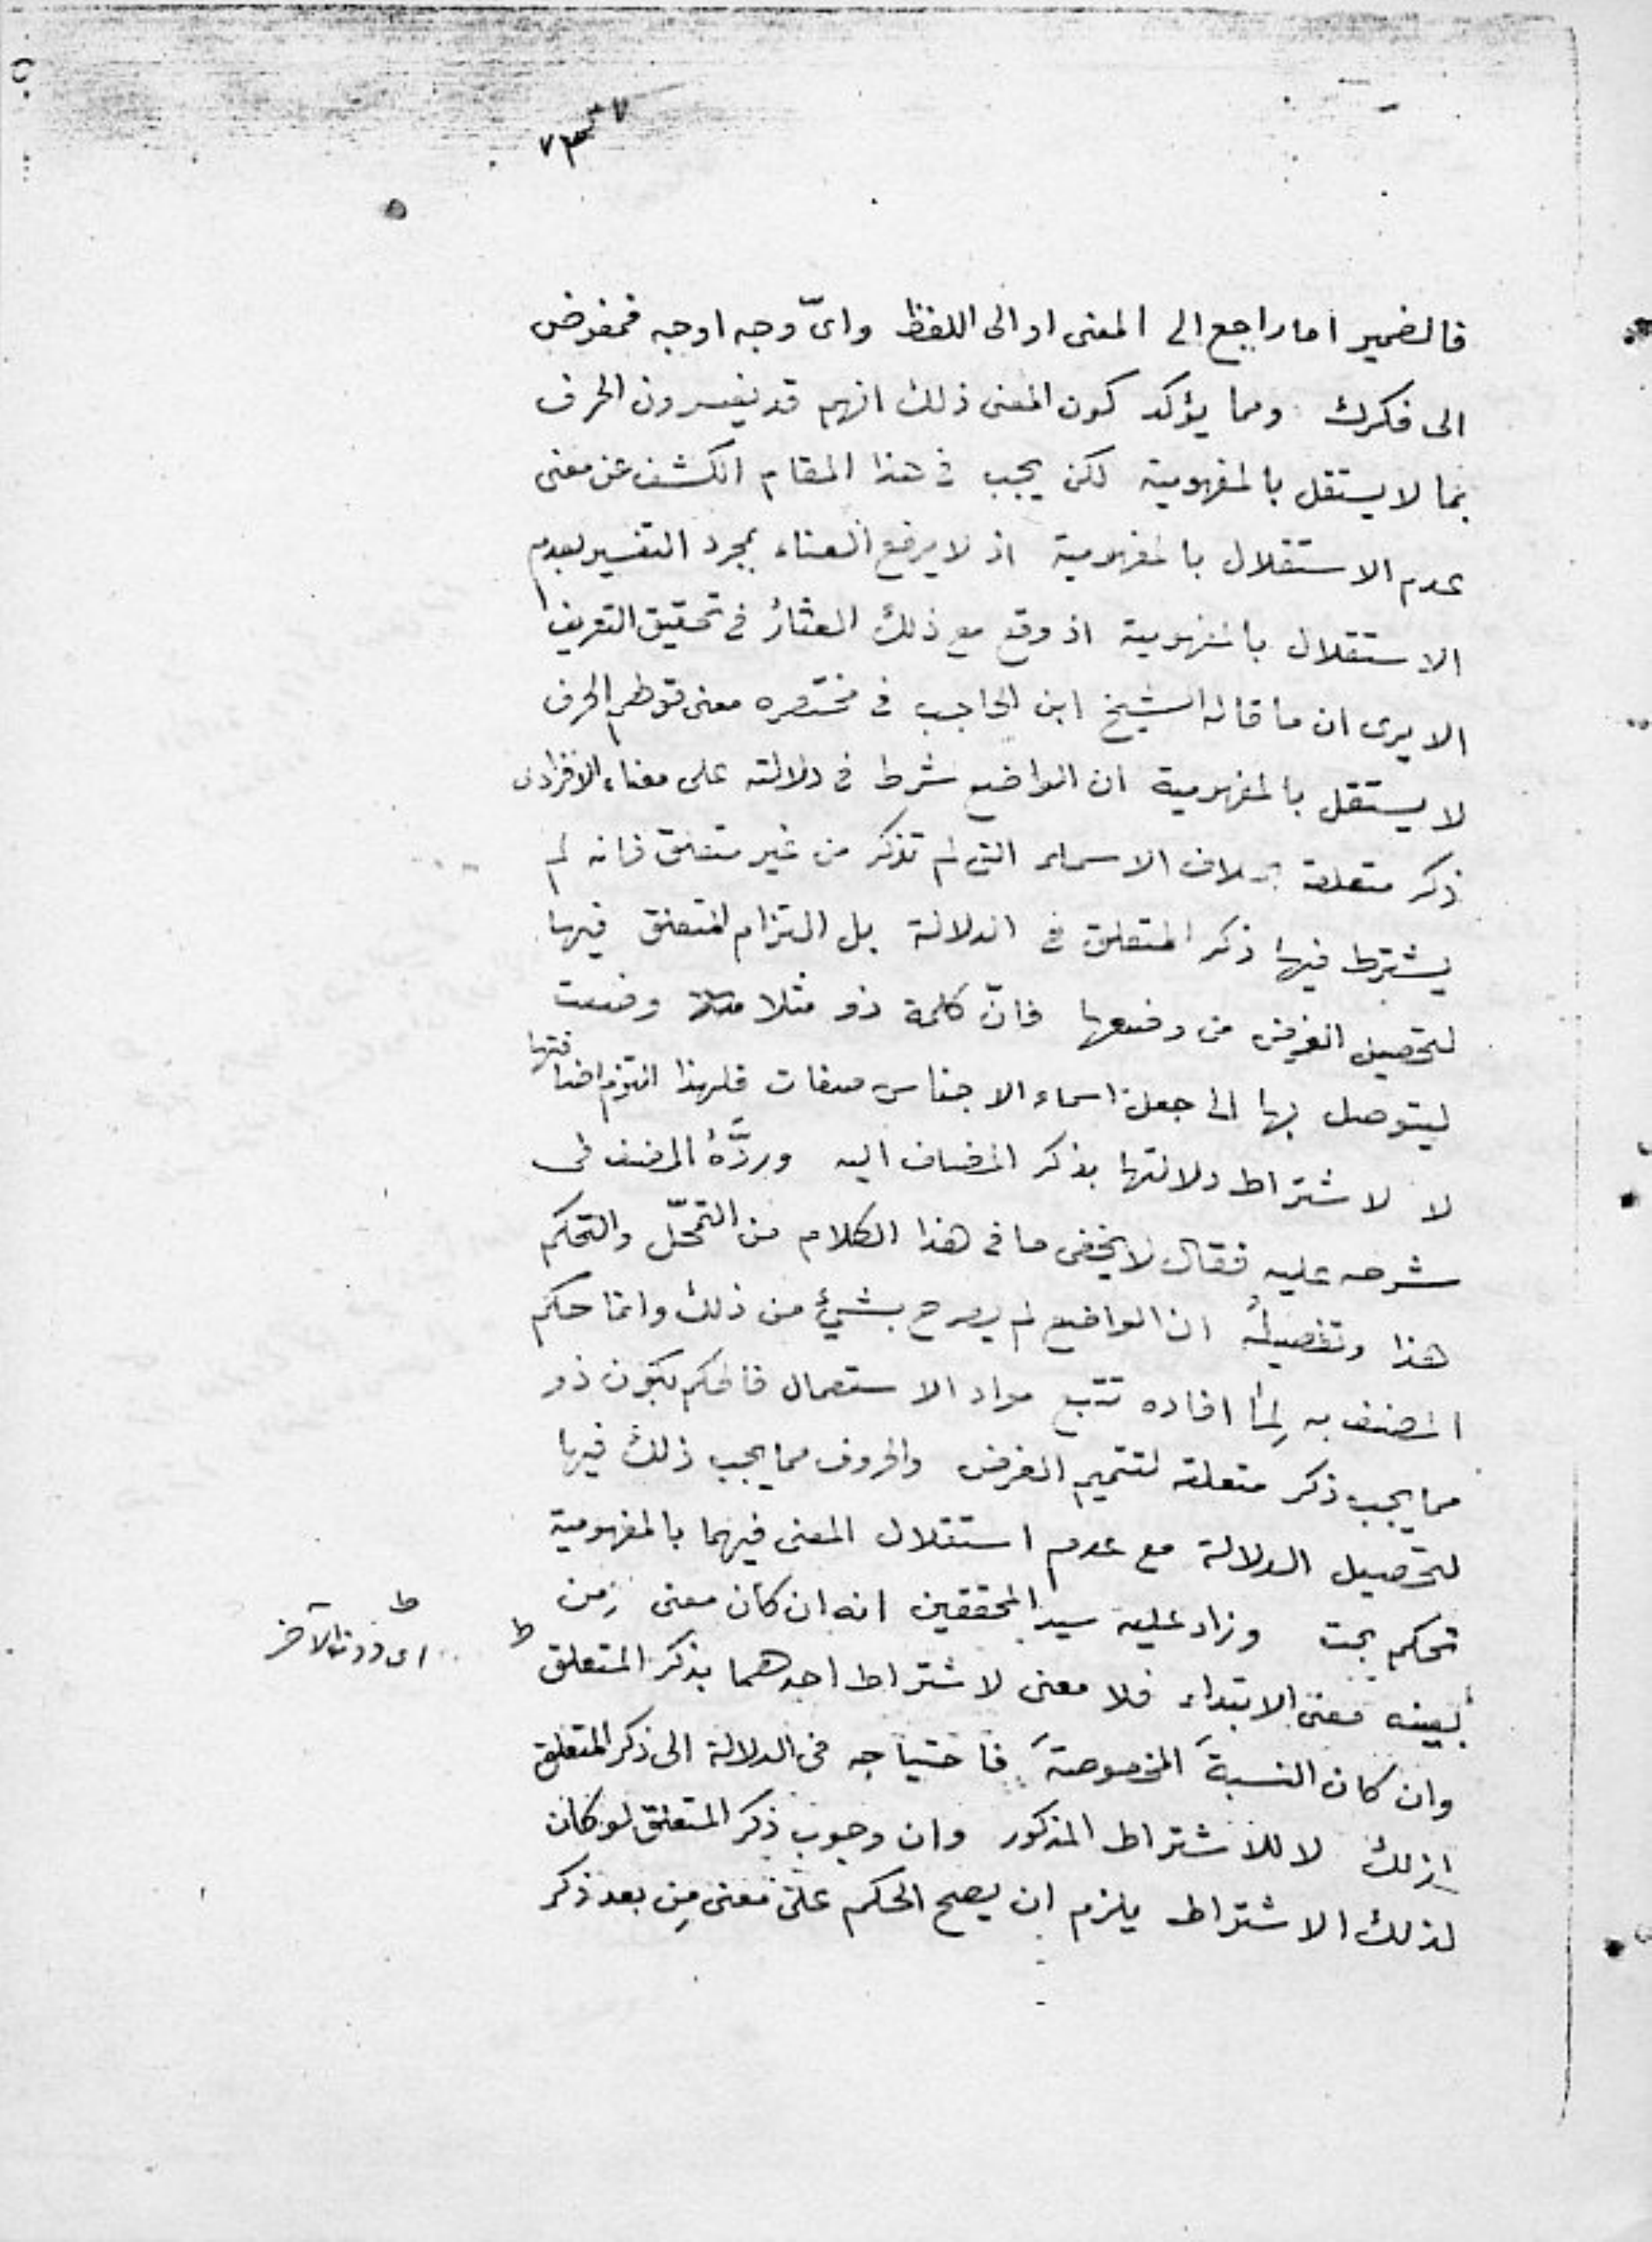 فالضمير اما راجع الى المعنى او الى اللفظ واىّ وجه اوجه فمفوض
الى فكرك ومما يؤكد كون المعنى ذلك انهم قد يفسرون الحرف
بما لا يستقل بالمفهومية لكن يجب فى هذا المقام الكشف عن معنى
عدم الاستقلال بالمفهومية اذ لا يرفع العناء بمجرد التفسير بعدم
الاستقلال بالمفهومية اذ وقع مع ذلك العثار فى تحقيق التعريف
الا يرى ان ما قاله الشيخ ابن الحاجب فى مختصره معنى قولهم الحرف
لا يستقل بالمفهومية ان الواضع شرط فى دلالته على معناه الافرادى
ذكر متعلقه بخلاف الاسماء التى لم تذكر من غير متعلق فانه لم
يشترط فيها ذكر المتعلق فى الدلالة بل التزام المتعلق فيها
لتحصيل الغرض من وضعها فانّ كلمة ذو مثلا وضعت
ليتوصل بها الى جعل اسماء الاجناس صفات فلهذا التزم اضافتها
لا لاشتراط دلالتها بذكر المضاف اليه وردَّهُ المصنف فى
شرحه عليه فقال لا يخفى ما فى هذا الكلام من التمحّل والتحكم
هذا وتفصيلُه ان الواضع لم يصرح بشئ من ذلك وانما حكم
المصنف به لِما افاده تتبع مواد الاستعمال فالحكم بكون ذو
مما يجب ذكر متعلقه لتتميم الغرض والحروف مما يجب ذلك فيها
لتحصيل الدلالة مع عدم استقلال المعنى فيهما بالمفهومية
تحكم بحت وزاد عليه سيد المحققين انه ان كان معنى مِن
بعينه معنى الابتداء فلا معنى لاشتراط احدهما بذكر المتعلق ط
ط
اى دون الآخر
وان كان النسبةَ المخصوصةَ فاحتياجه فى الدلالة الى ذكر المتعلق
لذلك لا للاشتراط المذكور وان وجوب ذكر المتعلق لو كان
لذلك الاشتراط يلزم ان يصح الحكم على معنى مِن بعد ذكر